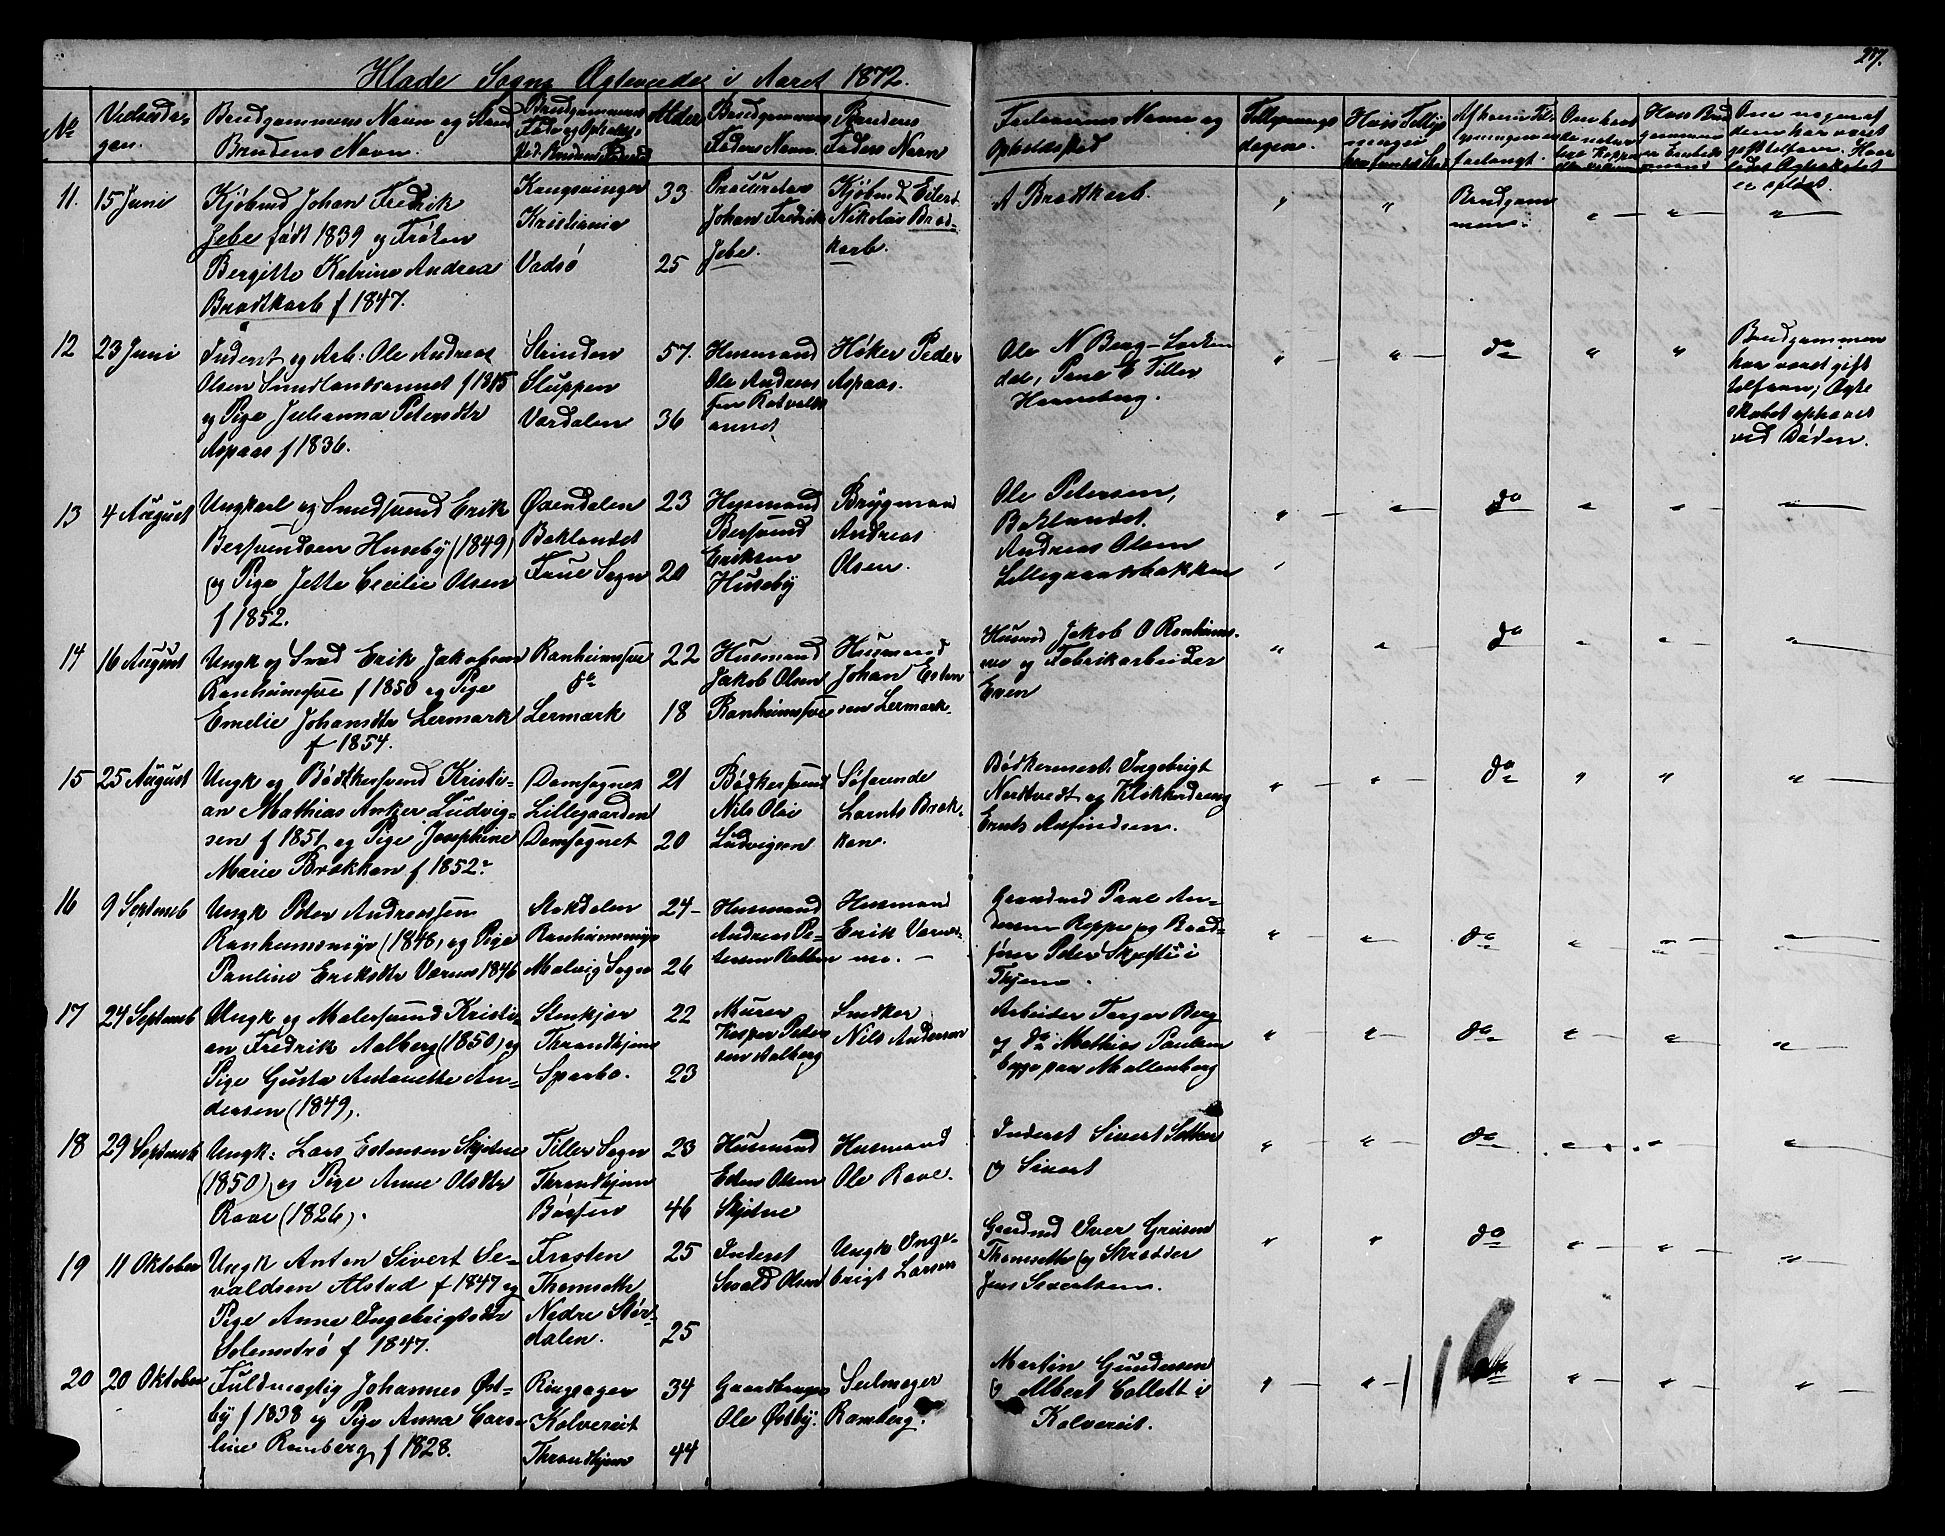 207.
Hlade Sogns Ægteviede i Aaret 1872.
No
Vielsesda-
gen.
Brudgommens Navn og Stand
Brudens Navn.
Brudgommens
Føde og Opholds
Sted. Brudens Fødested
Alder
Brudgommens
Faders Navn
Brudens
Faders Navn
Forlovernes Navne og
Opholdssted
Tillysnings
dagene.
Hvis Tillys
ninger
Af hvem Til
lysningen er
forlangt.
Om noget af
dem har været
gift tilforn. Hvor
ledes Ægteskabet
er opløst.
11.
15 Juni
Kjøbmd Johan Fredrik
Jebe født 1839 og Frøken
Bergitte Katrine Andrea
Brodtkorb f 1847.
Kongsvinger
Kristiania
Vadsø
33
25
Procurator
Johan Fredrik
Jebe.
Kjøbmd Eilert
Nikolai Brod-
korb.
A Brodtkorb.
Brudgom
men.
12
23 Juni
Inderst og Arb: Ole Andreas
Olsen Sundlandsaunet f 1815
og Pige Julianna Petersdtr
Aspaas f 1836.
Strinden
Sluppen
Værdalen
57.
36
Husmand
Ole Andreas
sen Rotvolds
aunet
Høker Peder
Aspaas.
Ole N Berg-Lerken
dal, Paul E Tiller
Hoeneberg.
do
Brudgommen
har været gift
tilforn; Ægte
skabet ophævet
ved Døden.
13
4 August
Ungkarl og Smedsvend Erik
Bersvendsen Huseby (1849)
og Pige Jette Cecilie Olsen
f 1852.
Øiendalen
Baklandet
Frue Sogn
23
20
Husmand
Bersvend
Eriksen
Huseby
Brygmand
Andreas
Olsen.
Ole Petersen,
Baklandet.
Andreas Olsen
Lillegaardsbakken
do
14
16 August
Ungk og Smed Erik Jakobsen
Ranheimsøie f 1850 og Pige
Emelie Johansdtr Lermark
f 1854.
Ranheimsøie
do
Lermark
22
18
Husmand
Jakob Olsen
Ranheimsøie
Husmand
Johan Esten
sen Lermark.
Husmd Jakob O Ranheims-
øie og Fabrikarbeider
Even
do
15
25 August
Ungk og Bødkersvend Kristi-
an Mathias Anker Ludvig-
sen f 1851 og Pige Josephine
Marie Brækkan f 1852.
Domsognet
Lillegaarden
Domsognet
21
20
Bødkersvend
Nils Olai
Ludvigsen
Søfarende
Lornts Bræk-
kan.
Bødkermest. Ingebrigt
Nordtvedt og Klokkerdreng
Ernts Arfindsen.
do
16
9 Septemb
Ungk Peter Andreassen
Ranheimsmyr (1848) og Pige
Pauline Eriksdtr Værnes 1846
Stokdalen
Ranheimsmyr
Malvig Sogn
24
26
Husmand
Andreas Pe-
tersen Rabben
Husmand
Erik Værnes-
me.
Gaardmd Paul An-
dersen Reppe og Baad-
fører Peter Skjefte i
Thjem.
do
17
24 Septemb
Ungk og Malersvend Kristi-
an Fredrik Aalberg (1850) og
Pige Gusta Antonette An-
dersen (1849).
Stenkjær
Throndhjem
Sparbo.
22
23
Murer
Kasper Peter
sen Aalberg
Snedker
Nils Andersen
Arbeider Torger Berg
og do Mathias Paulsen
begge paa Møllenberg
do
18
29 Septemb
Ungk: Lars Estensen Skjetne
(1850) og Pige Anne Olsdtr
Raae (1826).
Tiller Sogn
Throndhjem
Børsen
23
46
Husmand
Esten Olsen
Skjetne
Husmand
Ole Raae.
Inderst Sivert Solber
og Sivert
do
19
11 Oktober
Ungk Anton Sivert Se-
valdsen Alstad f 1847 og
Pige Anne Ingebrigtsdtr
Solemstrø f 1847.
Frosten
Thomseth
Nedre Stør-
dalen.
25
25
Inderst
Sevald Olsen
Ungk Inge-
brigt Larsen
Gaardmd Iver Greisen
Thomseth og Skrædder
Jens Sivertsen.
do
20
20 Oktober
Fuldmægtig Johannes Øst-
by f 1838 og Pige Anna Caro-
line Ramberg f 1828.
Ringsager
Kolvereit
Throndhjem
34
44
Gaardbruger
Ole Østby.
Seilmager
Ramberg.
Martin Gundersen
og Albert Collett i
Kolvereit.